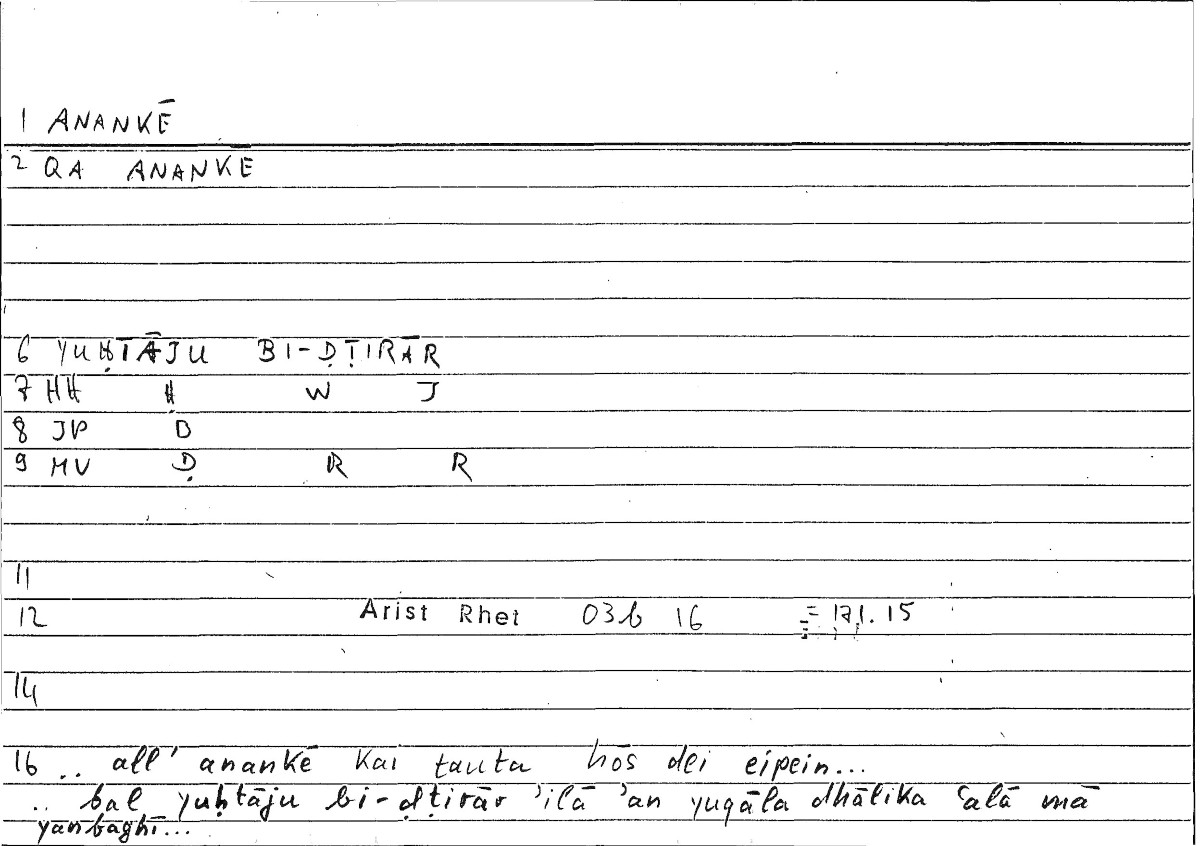 1 ANANKĒ
2 QA ANANKE
6 YUḤTĀJU BI-ḌṬIRĀR
7 HH Ḥ W J
8 JP D
9 MV Ḍ R R
11
12 Arist Rhet 03b 16 = 171.15
14
16 .. all' anankē kai tauta hōs dei eipein...
.. bal yuḥtāju bi-ḍṭirār 'ilā 'an yuqāla dhālika ʿalā mā
yanbaghī...